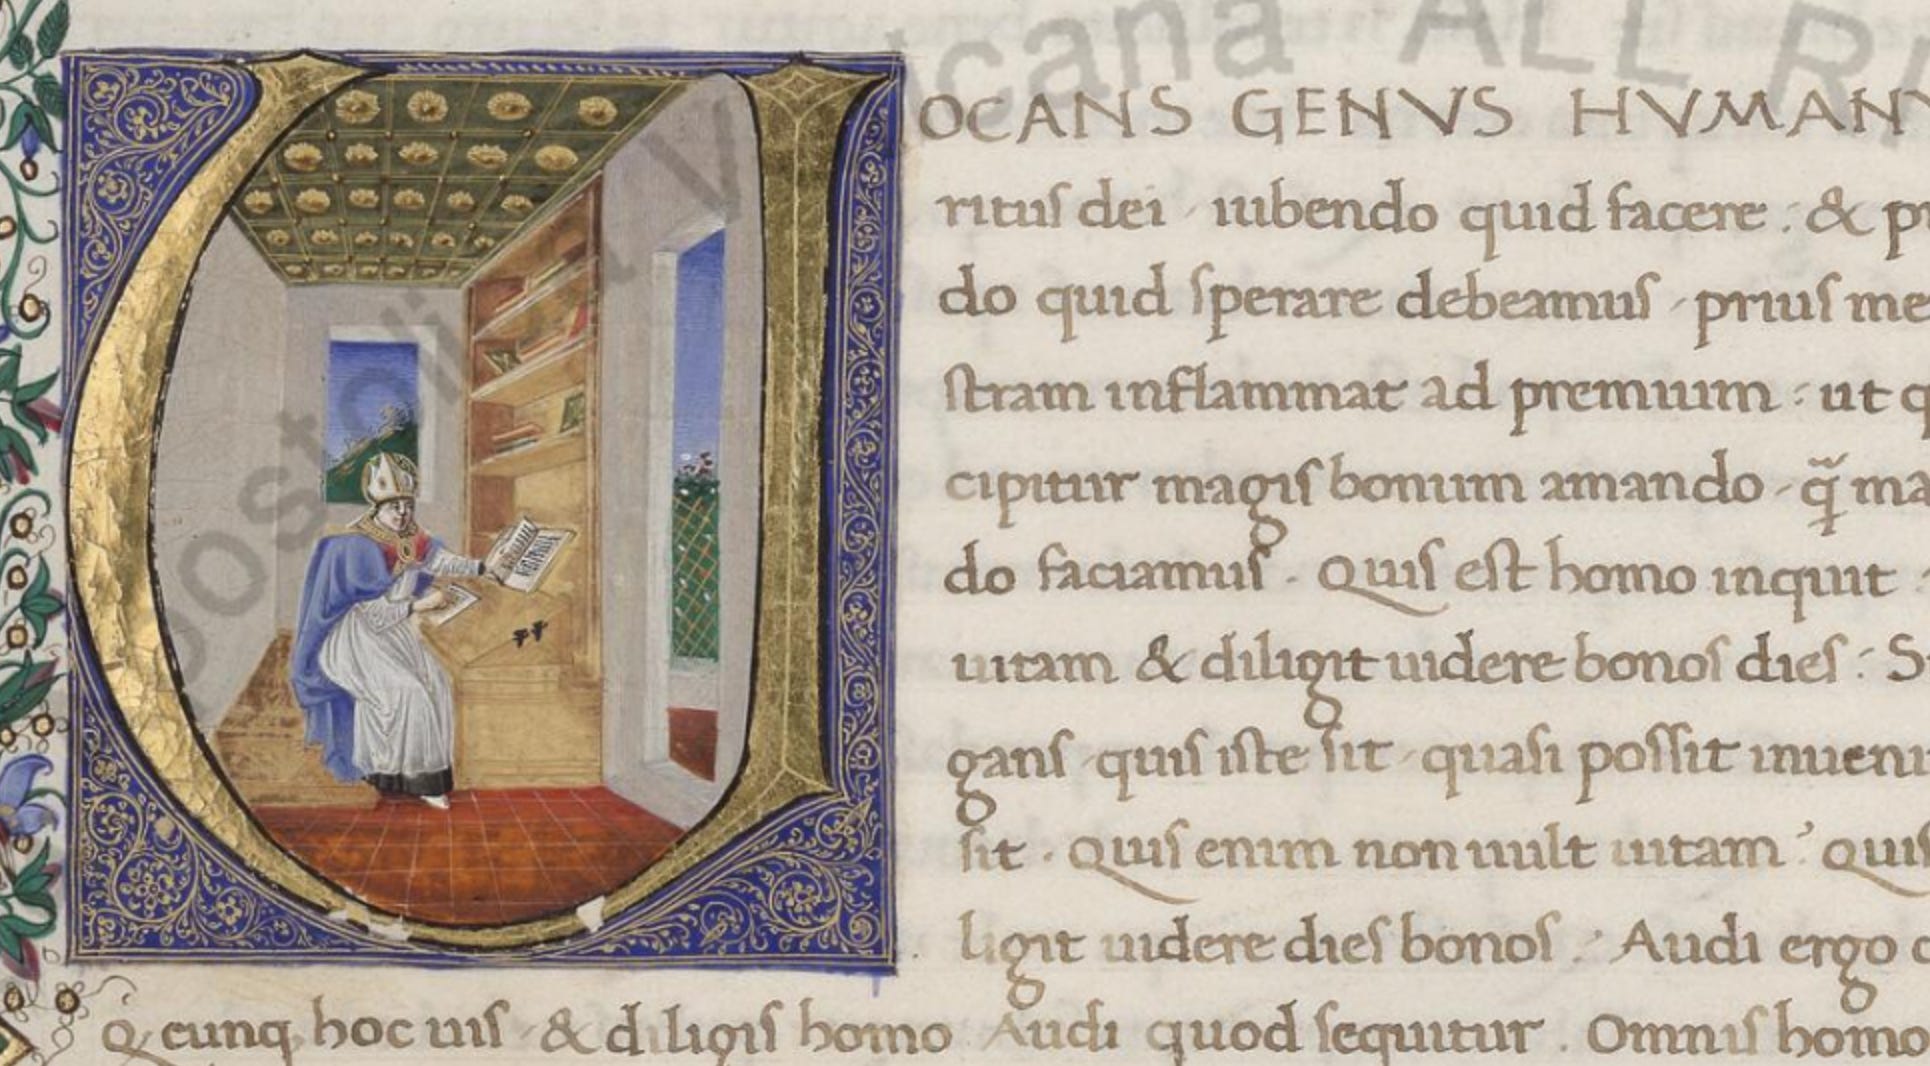 VOCANS GENVS HVMANV
ritus dei iubendo quid facere : & p
do quid sperare debeamus prius me
stram inflammat ad premium : ut q
cipitur magis bonum amando q̃ ma
do faciamus . Quis est homo inquit
uitam & diligit uidere bonos dies : S
gans quis iste sit quasi possit inueni
sit . Quis enim non uult uitam ? quis
ligit uidere dies bonos : Audi ergo
cunq hoc uis & diligis homo Audi quod sequitur . Omnis homo